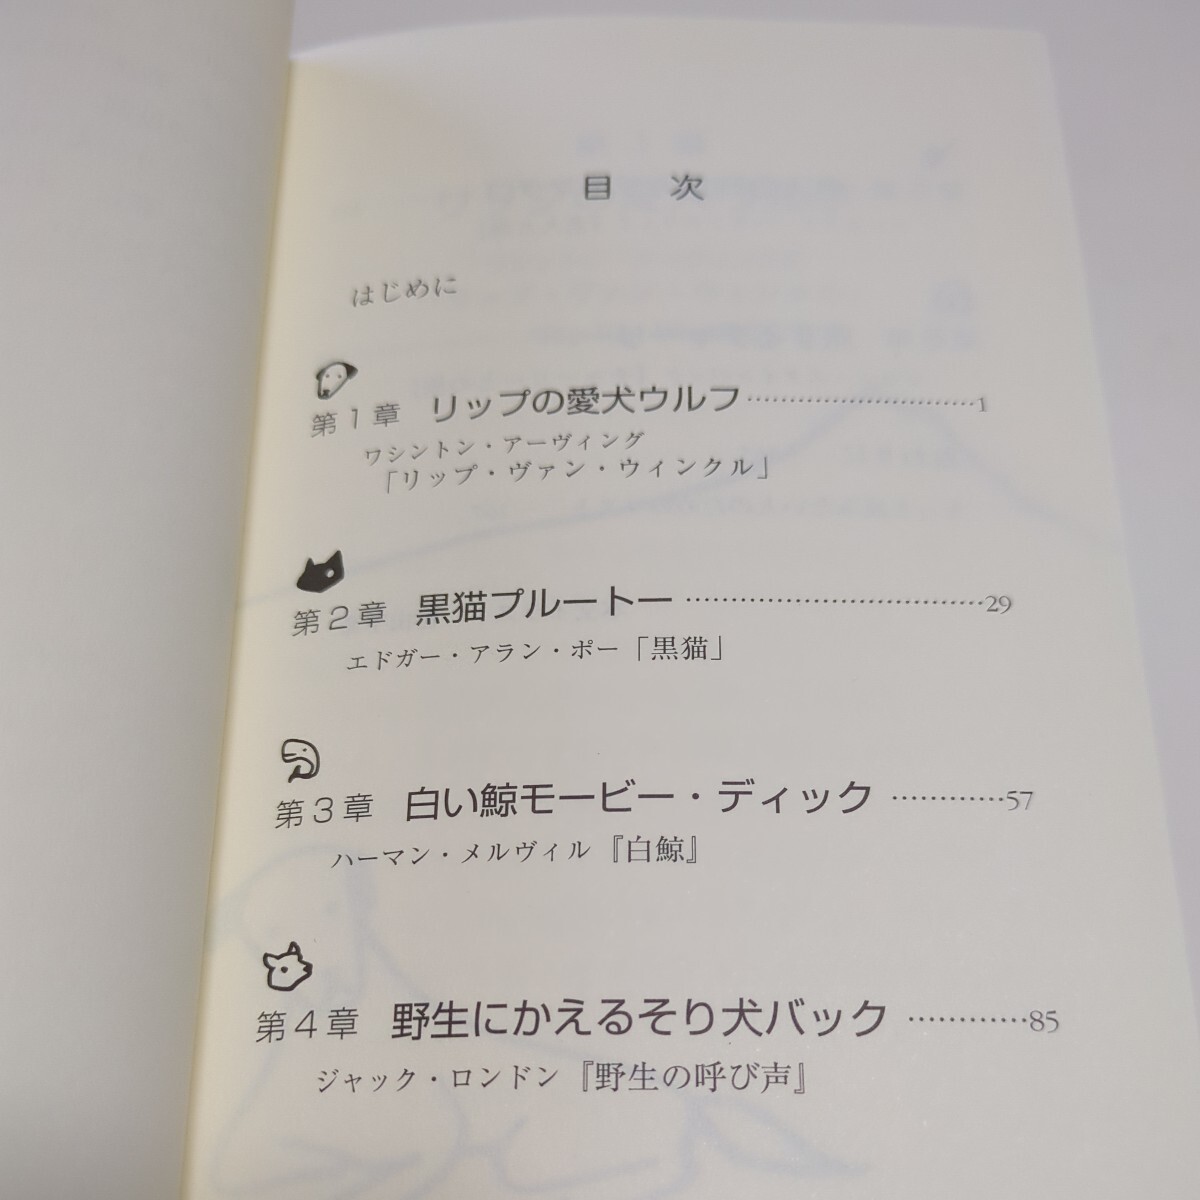 目 次
はじめに
第1章 リップの愛犬ウルフ…………………………1
ワシントン・アーヴィング
「リップ・ヴァン・ウィンクル」
第2章 黒猫プルートー……………………………29
エドガー・アラン・ポー「黒猫」
第3章 白い鯨モービー・ディック…………57
ハーマン・メルヴィル『白鯨』
第4章 野生にかえるそり犬バック…………85
ジャック・ロンドン『野生の呼び声』